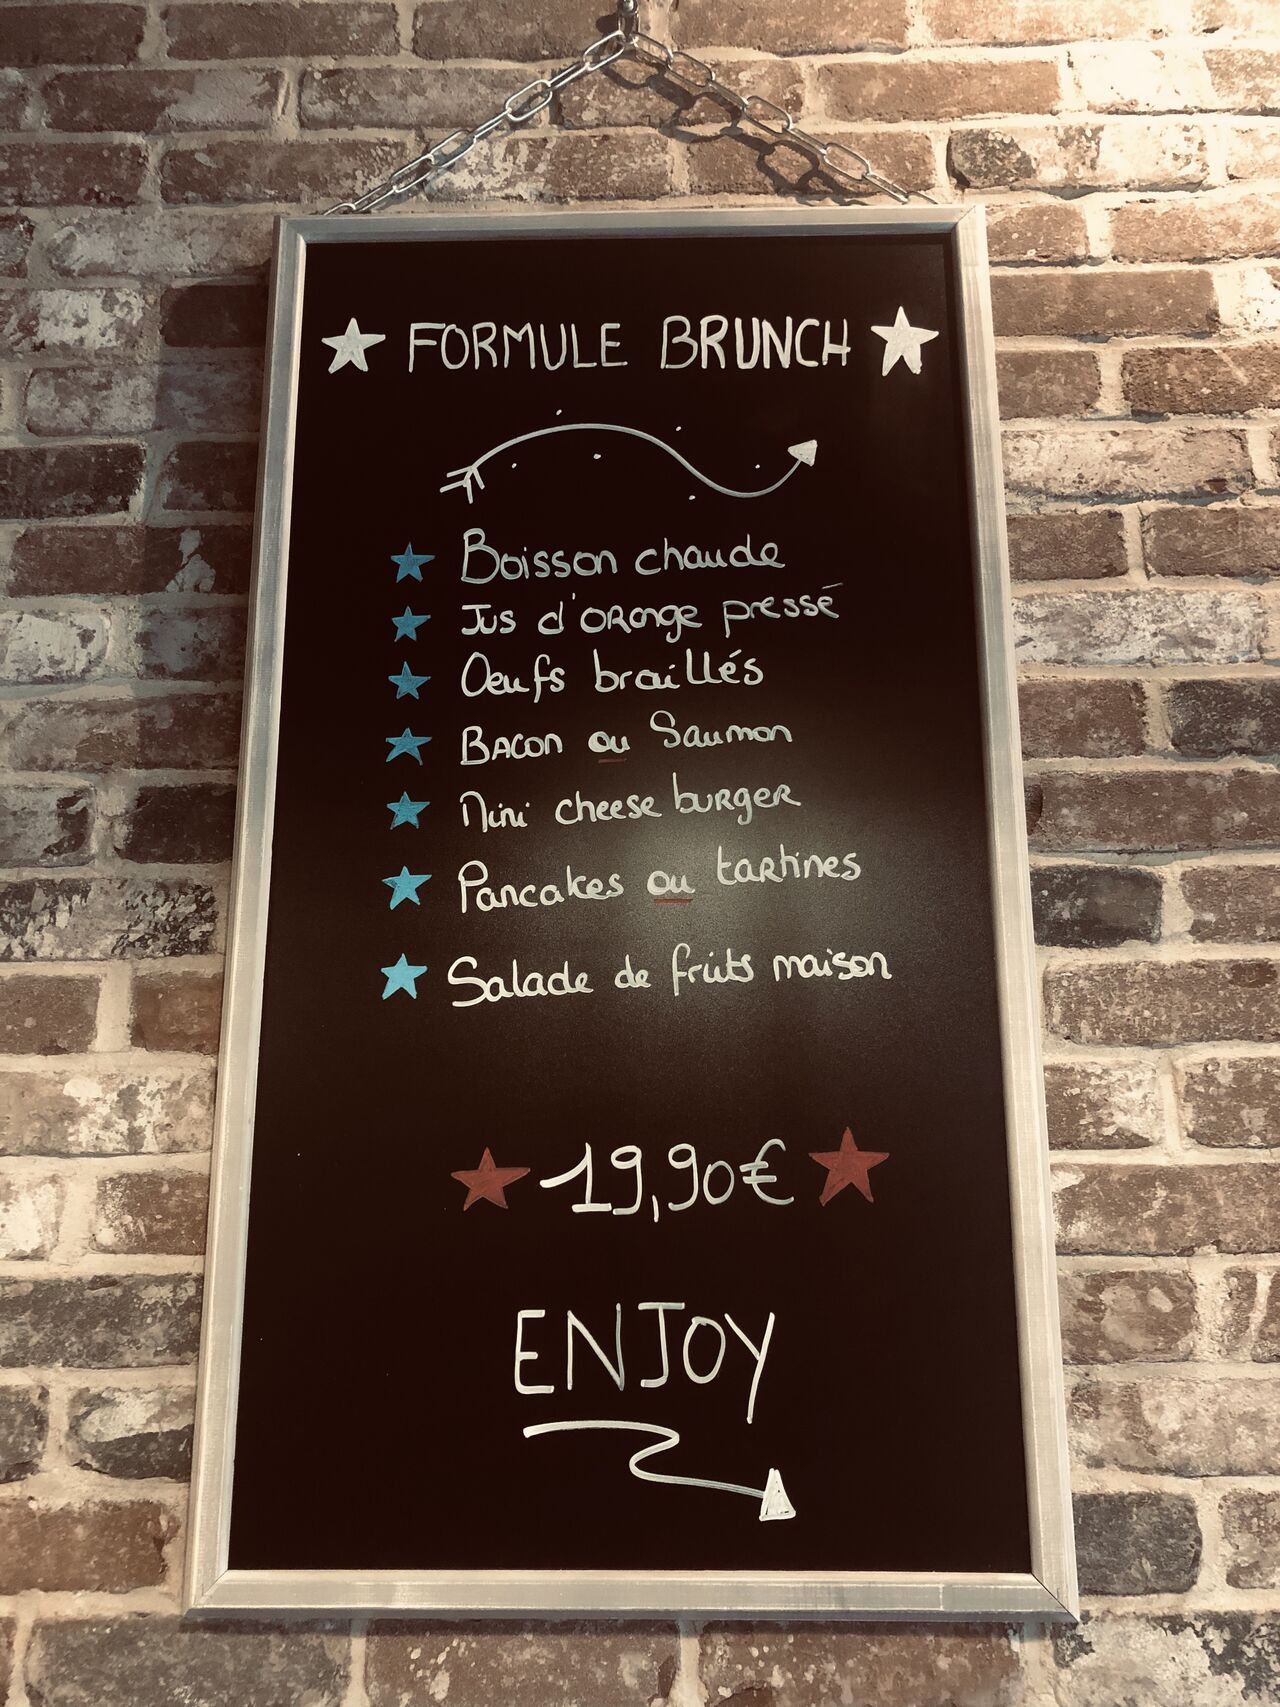 FORMULE BRUNCH
Boisson chaude
Jus d'orange pressé
Oeufs braillés
Bacon ou Saumon
Mini cheese burger
Pancakes ou tartines
Salade de fruits maison
19,90€
ENJOY